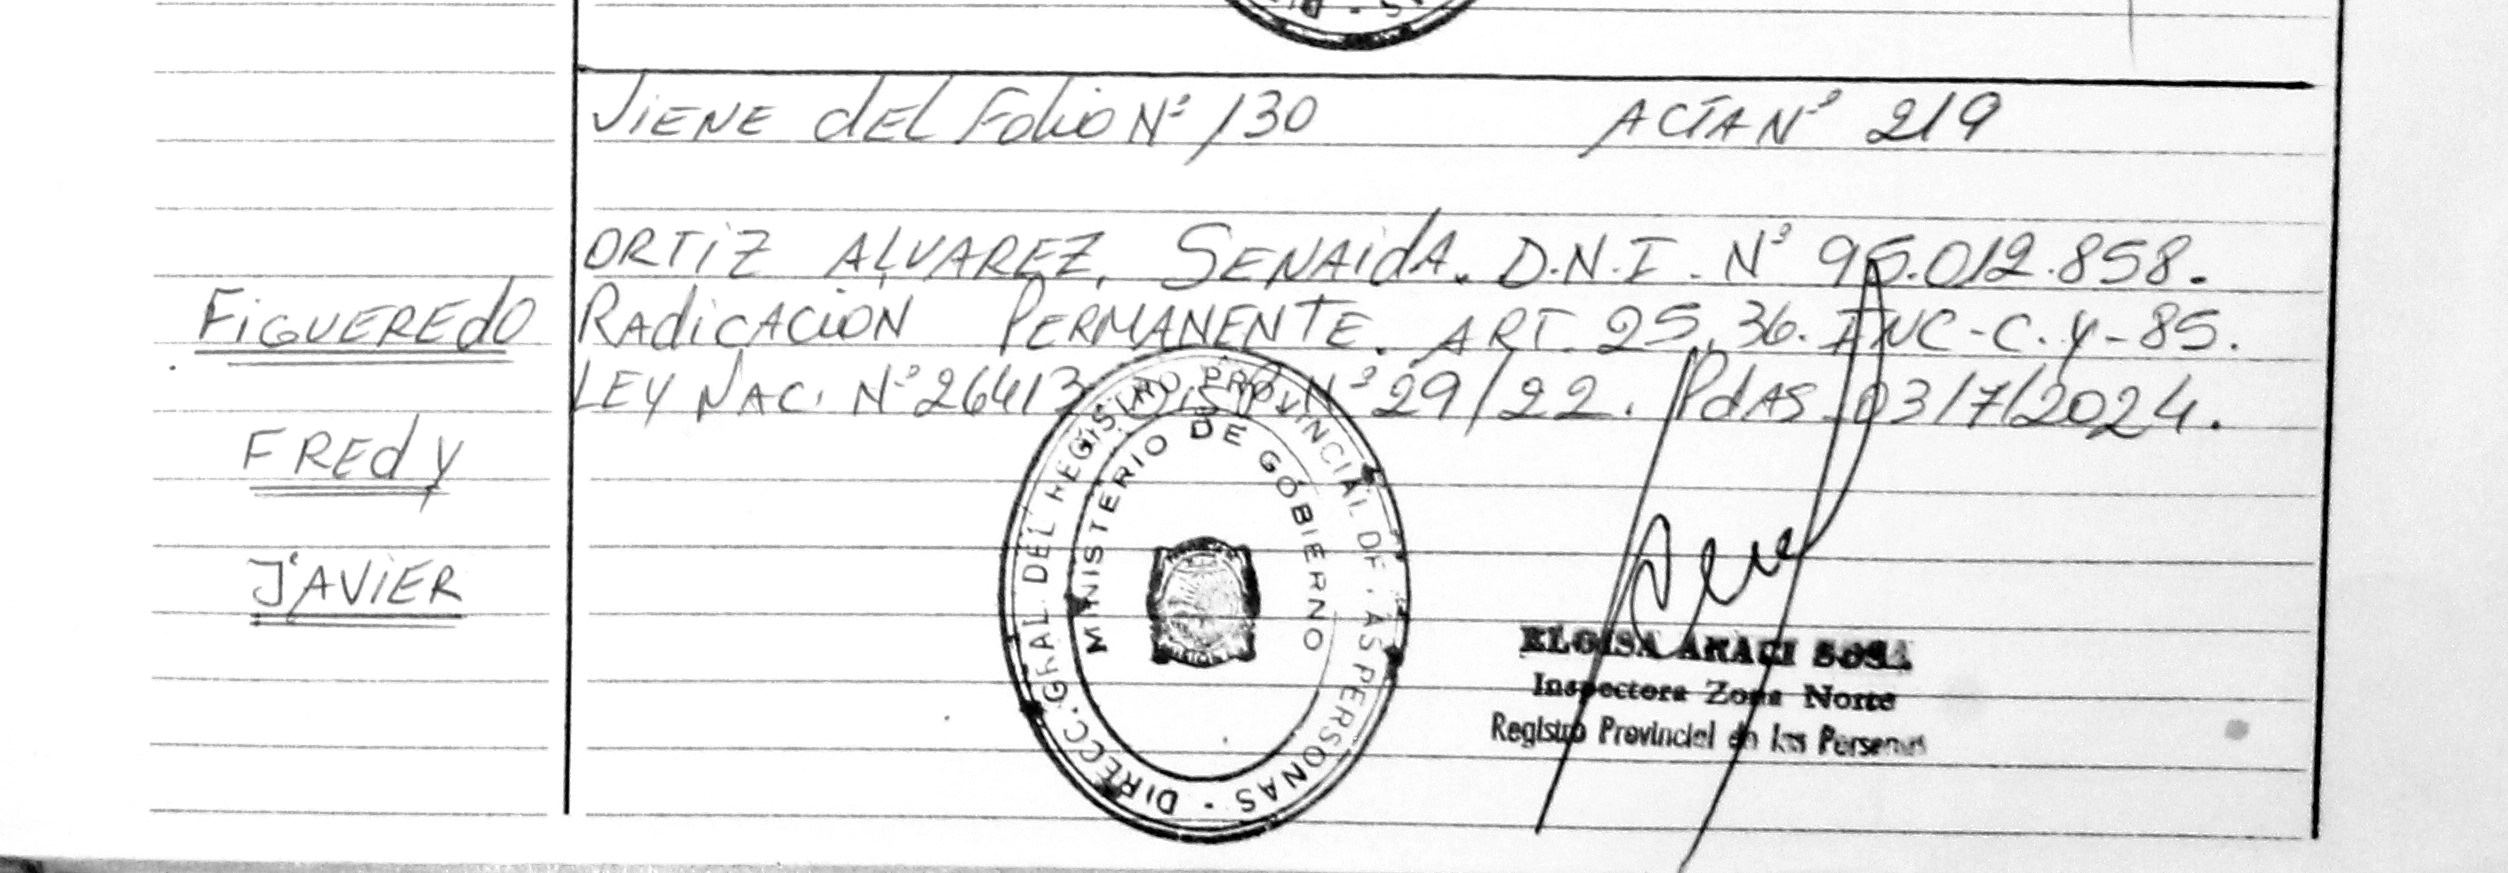 Viene del Folio Nº 130 ACTA Nº 219
ORTIZ ALVAREZ, SENAIDA. D.N.I. Nº 95.012.858.
FIGUEREDO
RADICACION PERMANENTE. ART. 25, 36. INC-C. Y-85.
LEY NAC. Nº 26413 DISP. Nº 29/22. PdAS 03/7/2024.
FREDY
JAVIER
DIRECC. GRAL. DEL REGISTRO PROVINCIAL DE LAS PERSONAS
MINISTERIO DE GOBIERNO
ELOISA ARACI SOSA
Inspectora Zona Norte
Registro Provincial de las Personas